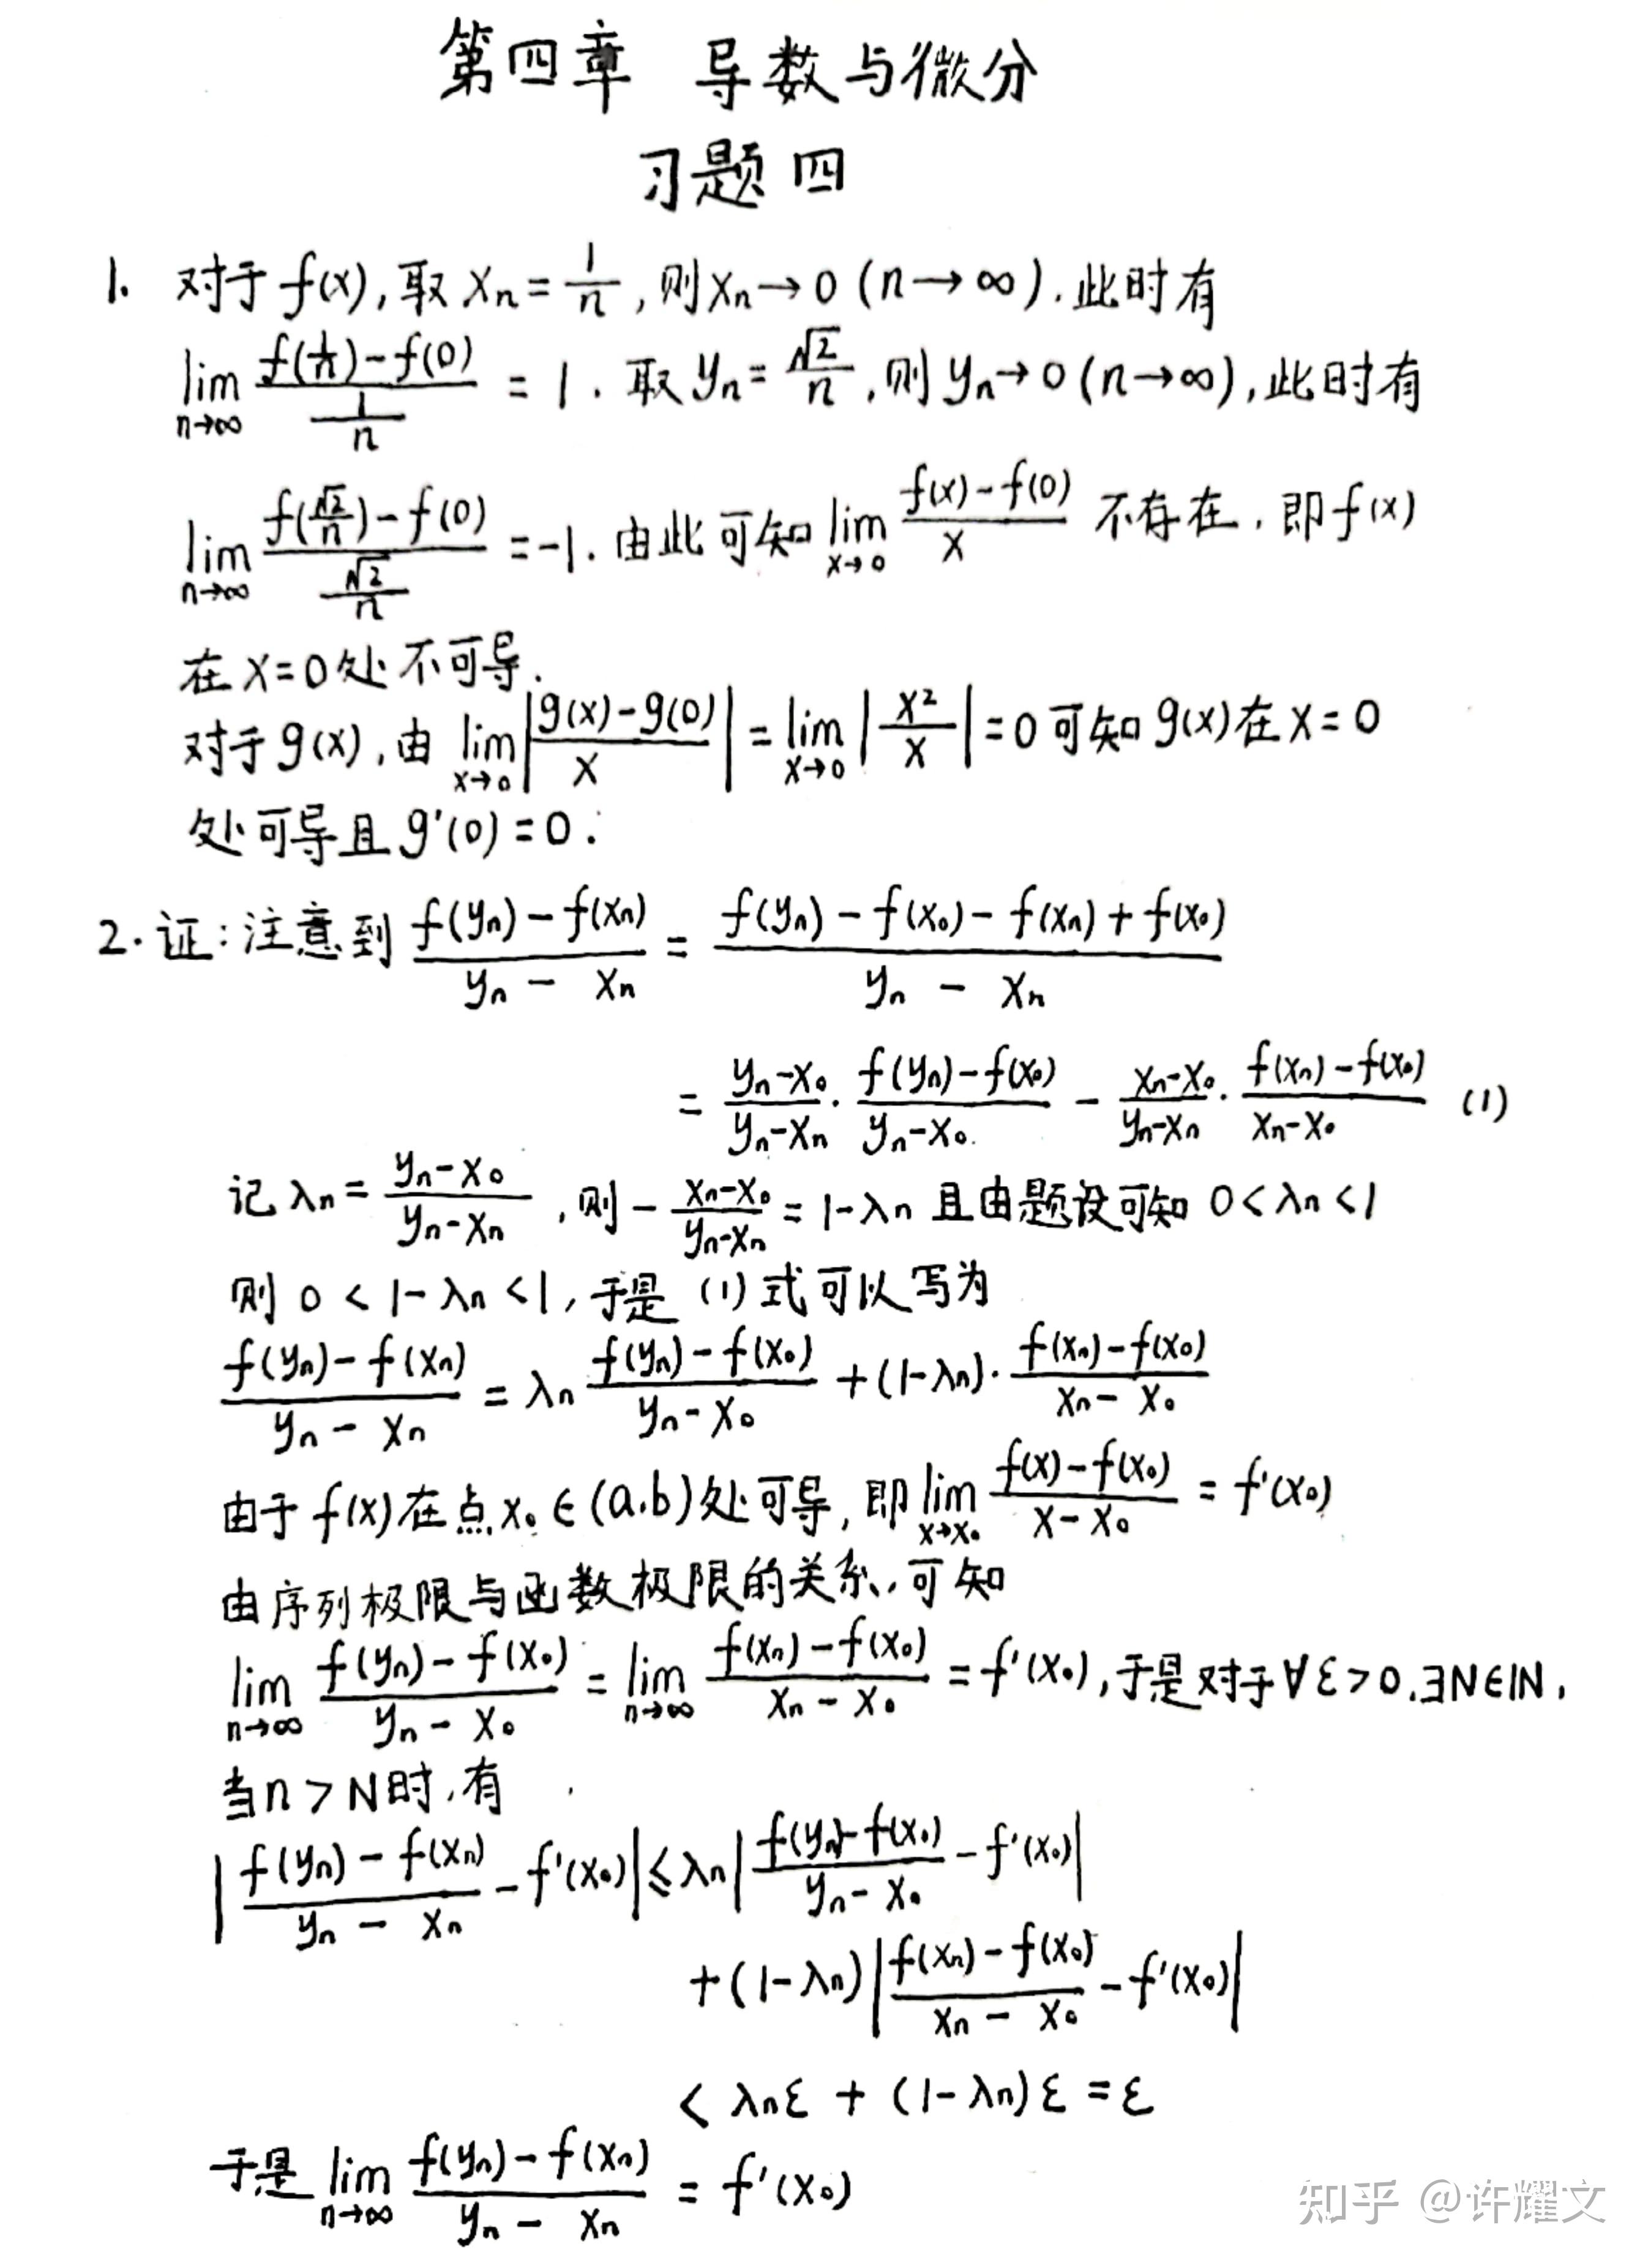 第四章 导数与微分
习题四
1. 对于 f(x), 取 xₙ = 1/n, 则 xₙ → 0 (n → ∞). 此时有
lim_{n→∞} (f(1/n) - f(0))/(1/n) = 1. 取 yₙ = √2/n, 则 yₙ → 0 (n → ∞), 此时有
lim_{n→∞} (f(√2/n) - f(0))/(√2/n) = -1. 由此可知 lim_{x→0} (f(x) - f(0))/x 不存在, 即 f(x)
在 x = 0 处不可导.
对于 g(x), 由 lim_{x→0} |(g(x) - g(0))/x| = lim_{x→0} |x²/x| = 0 可知 g(x) 在 x = 0
处可导且 g'(0) = 0.
2. 证: 注意到 (f(yₙ) - f(xₙ))/(yₙ - xₙ) = (f(yₙ) - f(x₀) - f(xₙ) + f(x₀))/(yₙ - xₙ)
= (yₙ - x₀)/(yₙ - xₙ) · (f(yₙ) - f(x₀))/(yₙ - x₀) - (xₙ - x₀)/(yₙ - xₙ) · (f(xₙ) - f(x₀))/(xₙ - x₀) (1)
记 λₙ = (yₙ - x₀)/(yₙ - xₙ), 则 -(xₙ - x₀)/(yₙ - xₙ) = 1 - λₙ 且由题设可知 0 < λₙ < 1
则 0 < 1 - λₙ < 1, 于是 (1) 式可以写为
(f(yₙ) - f(xₙ))/(yₙ - xₙ) = λₙ (f(yₙ) - f(x₀))/(yₙ - x₀) + (1 - λₙ) · (f(xₙ) - f(x₀))/(xₙ - x₀)
由于 f(x) 在点 x₀ ∈ (a.b) 处可导, 即 lim_{x→x₀} (f(x) - f(x₀))/(x - x₀) = f'(x₀)
由序列极限与函数极限的关系, 可知
lim_{n→∞} (f(yₙ) - f(x₀))/(yₙ - x₀) = lim_{n→∞} (f(xₙ) - f(x₀))/(xₙ - x₀) = f'(x₀), 于是对于 ∀ε > 0. ∃N∈ℕ,
当 n > N 时, 有
|(f(yₙ) - f(xₙ))/(yₙ - xₙ) - f'(x₀)| ≤ λₙ |(f(yₙ) - f(x₀))/(yₙ - x₀) - f'(x₀)|
+ (1 - λₙ) |(f(xₙ) - f(x₀))/(xₙ - x₀) - f'(x₀)|
< λₙε + (1 - λₙ)ε = ε
于是 lim_{n→∞} (f(yₙ) - f(xₙ))/(yₙ - xₙ) = f'(x₀)
知乎 @许耀文